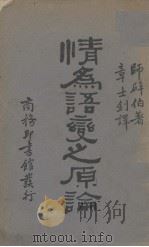 師辟伯著
章士釗譯
情爲語變之原論
商務印書館發行